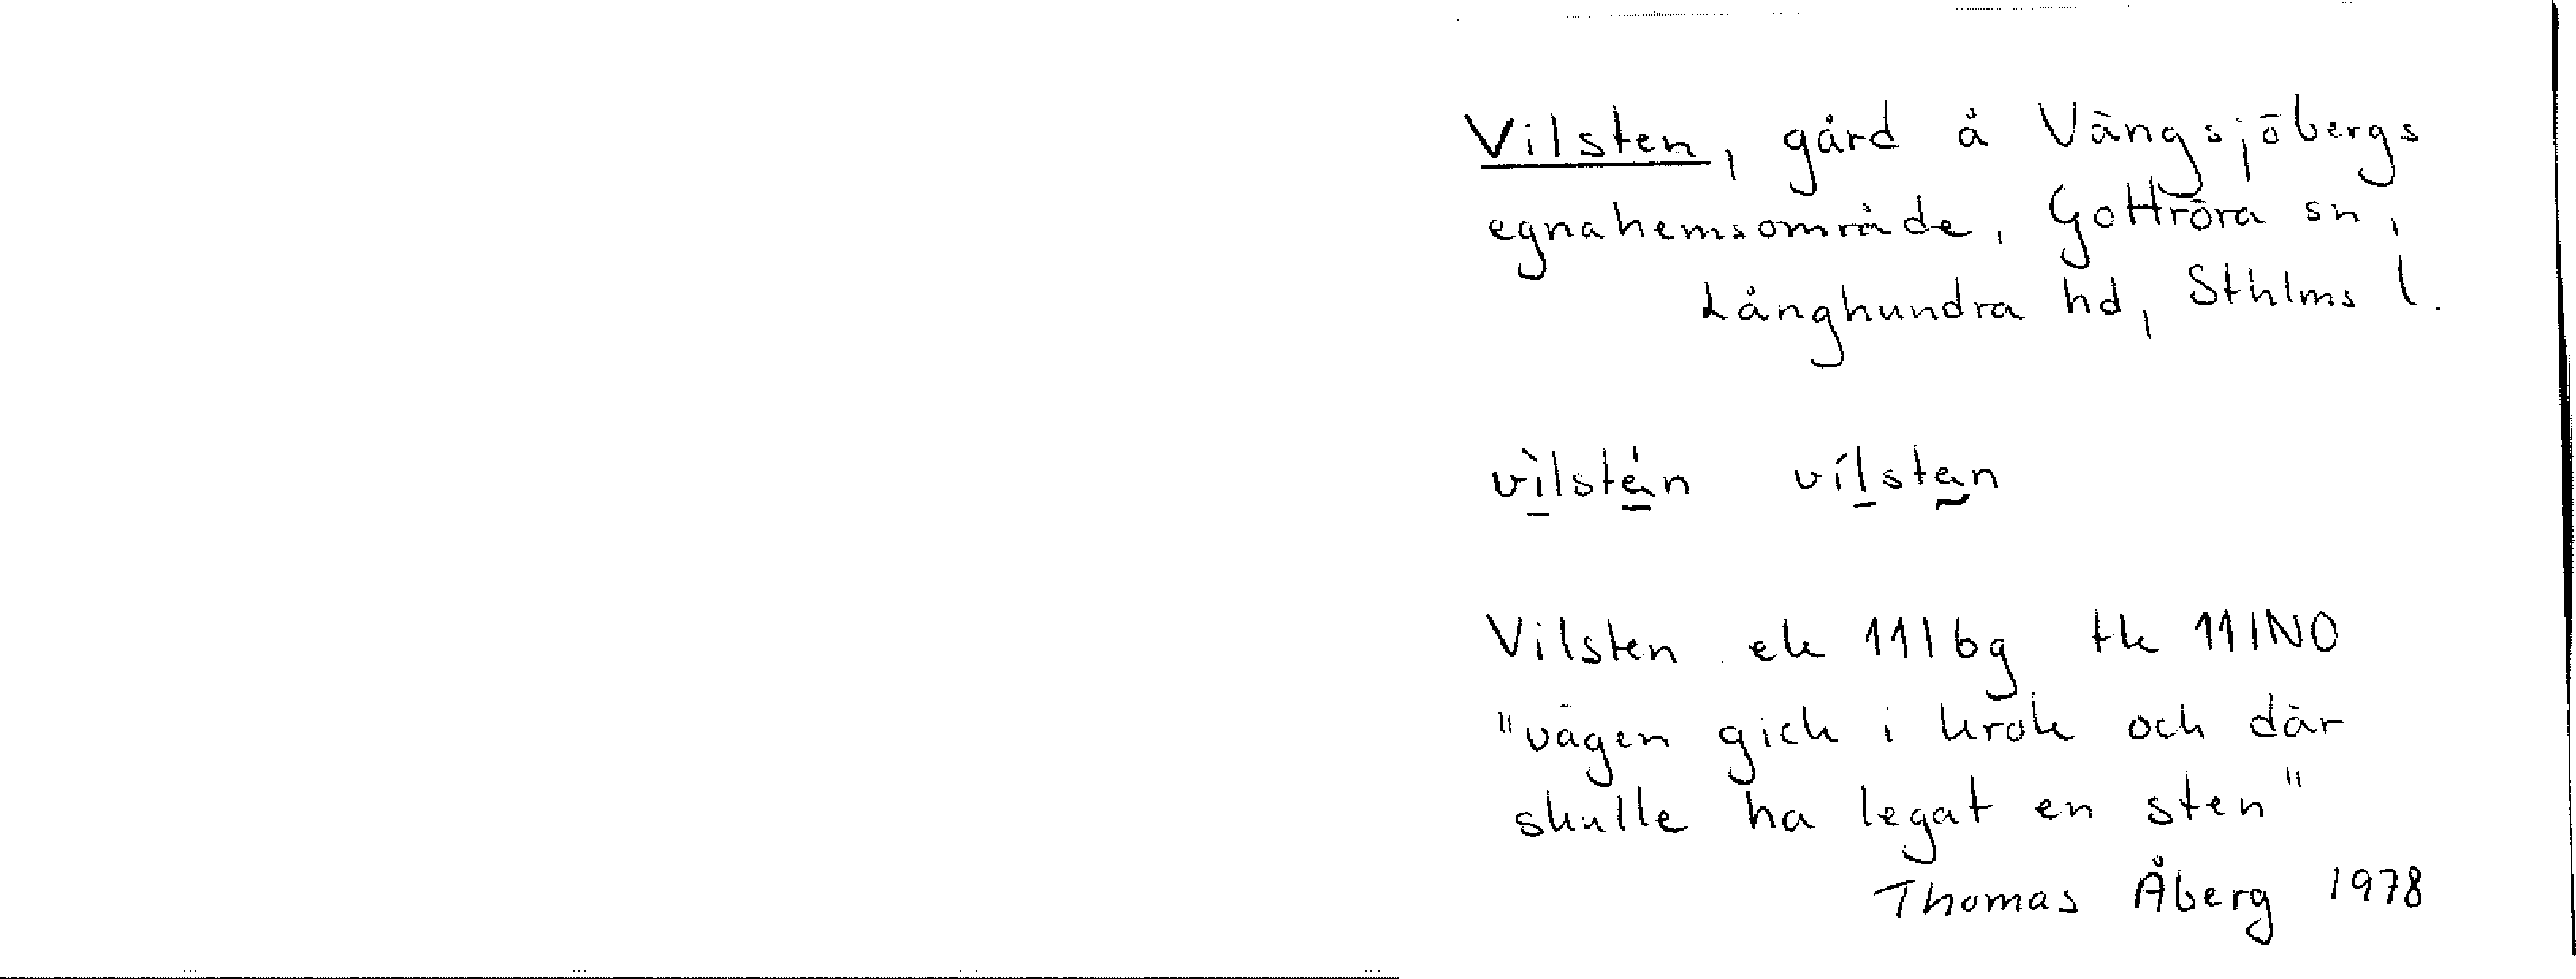 Vilsten, gård å Vängsjöbergs
egnahemsområde, Gottröra sn,
Långhundra hd, Sthlms l.
vìlstén vílsten
Vilsten ek 11I6g tk 11INO
"vägen gick i krok och där
skulle ha legat en sten"
Thomas Åberg 1978